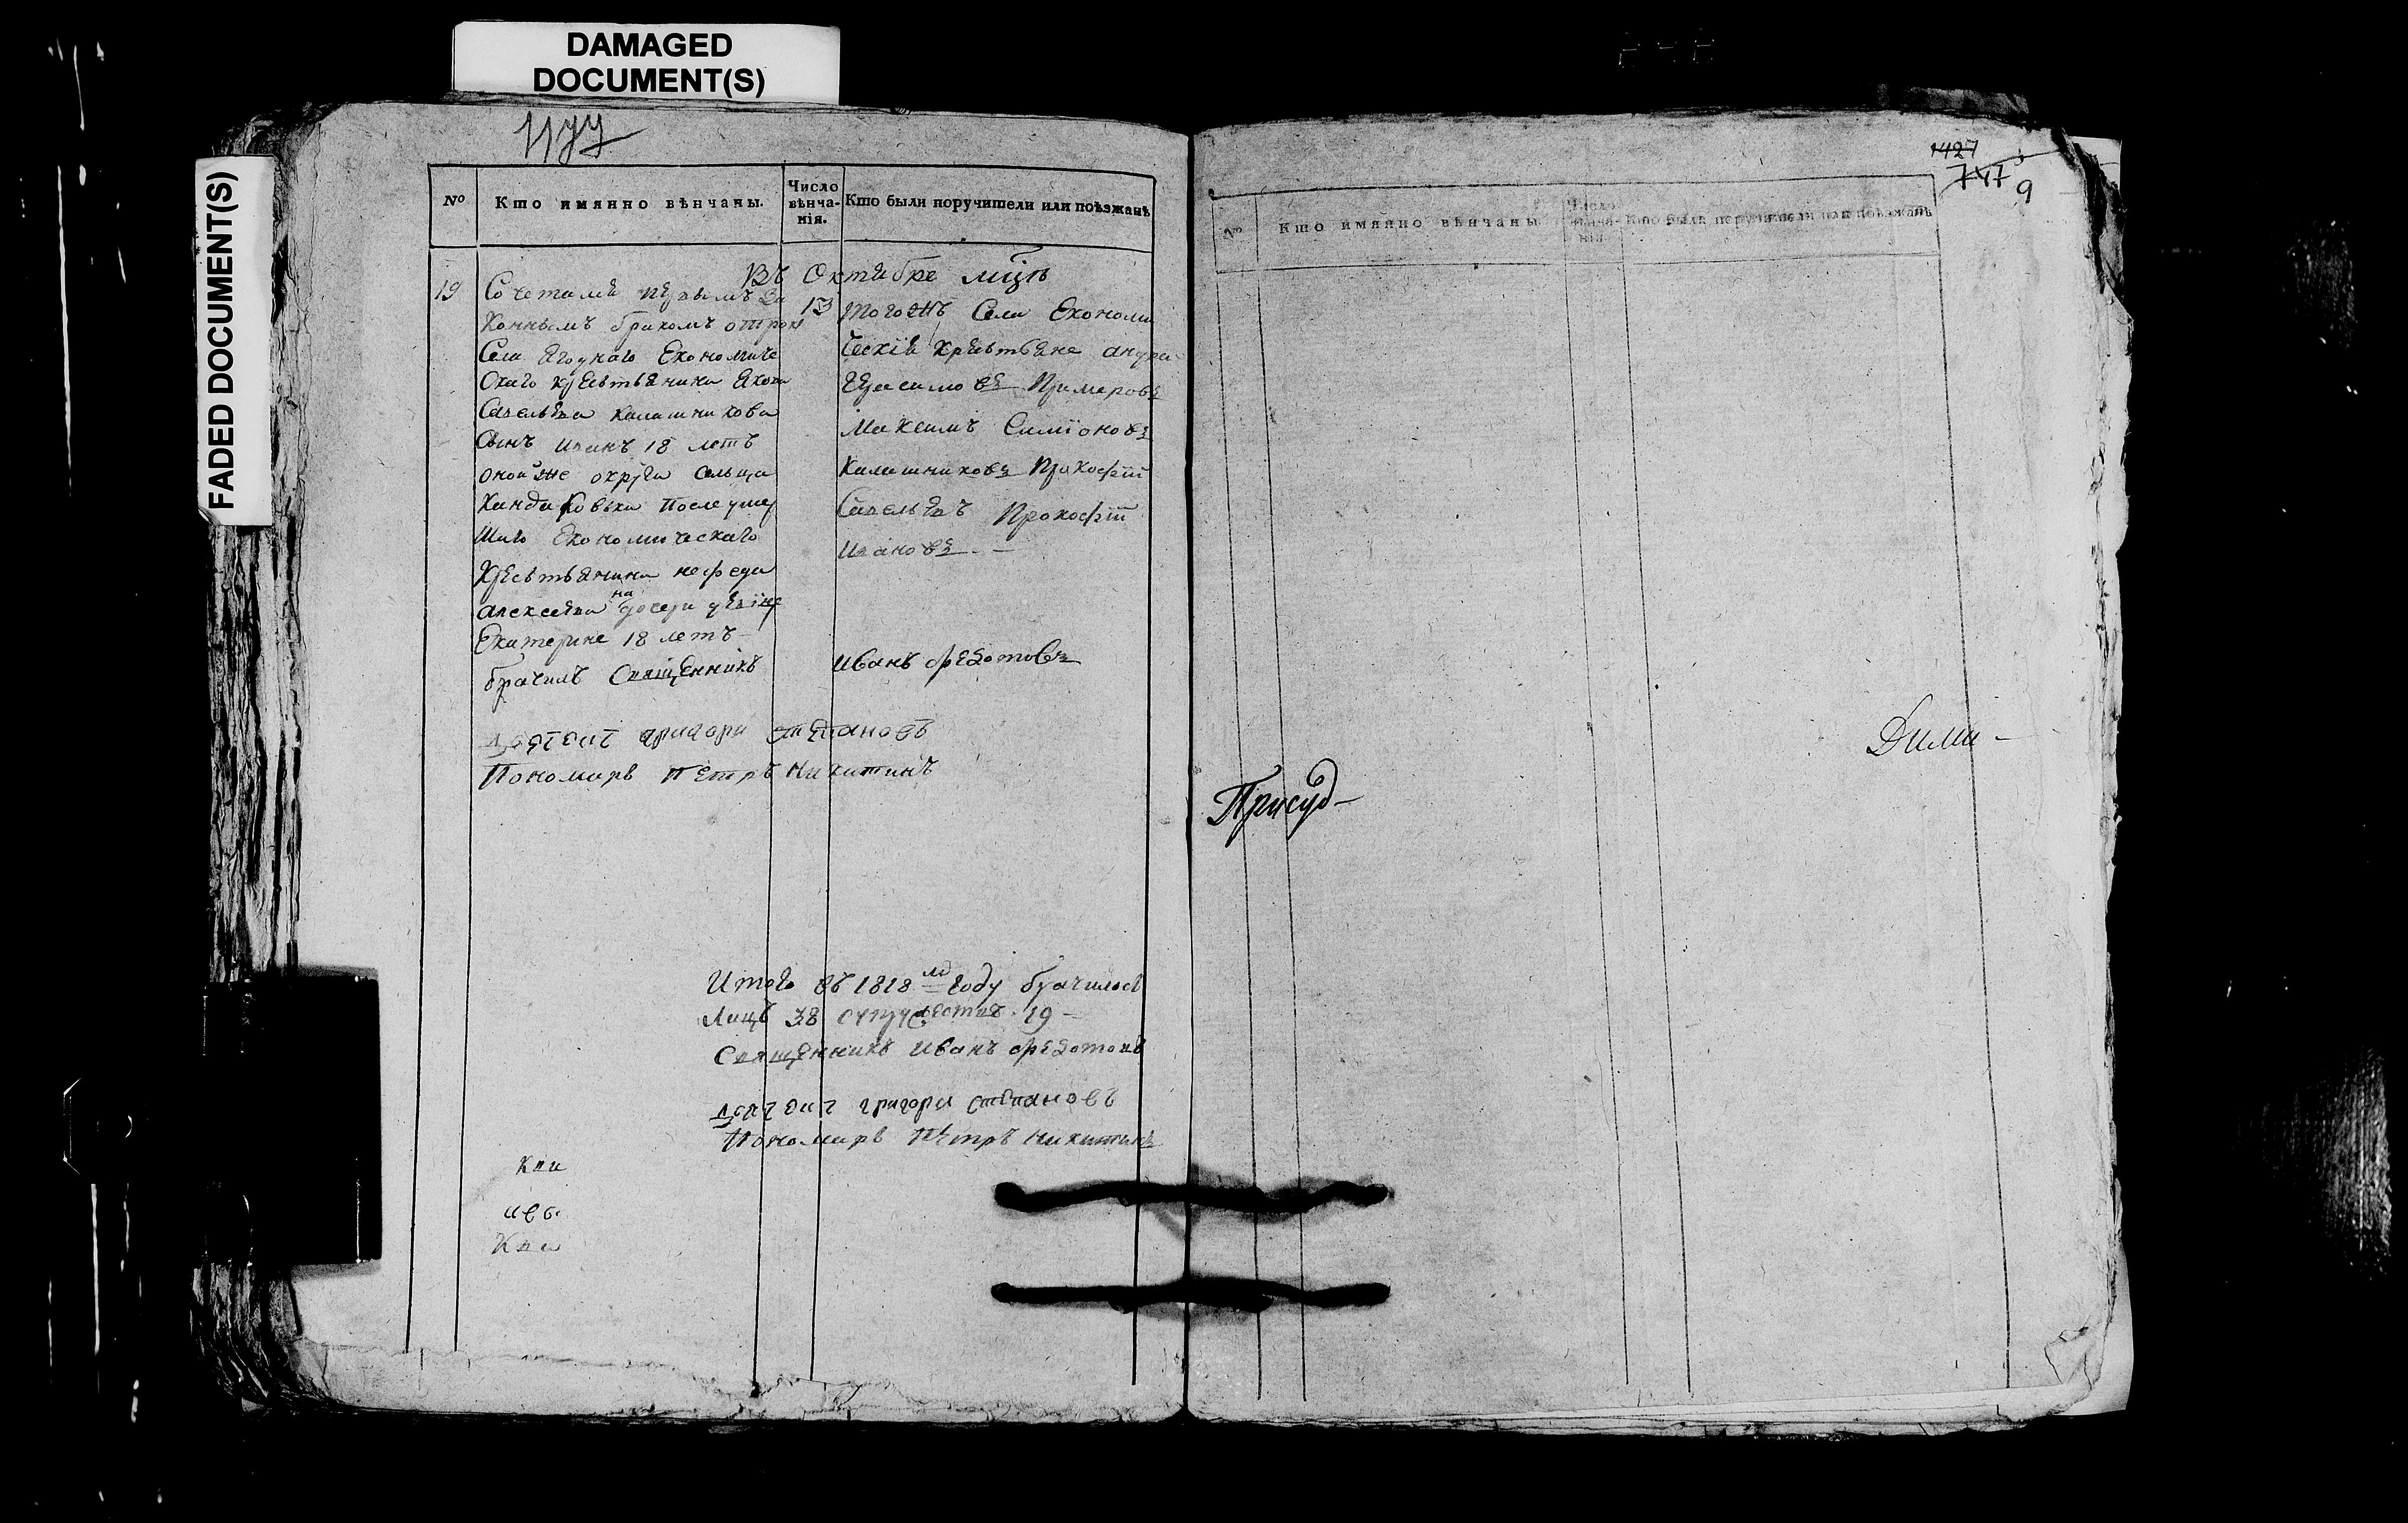 DAMAGED
DOCUMENT(S)
FADED DOCUMENT(S)
№
Кто имянно вѣнчаны.
Число вѣнча-
нія.
Кто были поручители или поѣзжанѣ
Въ Октябре мцѣ
19
Сочетался первымъ За
Коннымъ бракомъ отрокъ
Села Ягоднаго Економиче
Скаго крестьянина Якова
Савельева Калашникова
Сынъ иванъ 18 летъ
оной же округи сельца
Хандаковки После умер
Шаго Економическаго
Крестьянина нефеда
алексеева на дочери девице
Екатерине 18 летъ
13
тогожъ Села Економи
ческїе крестьяне андре
Герасимовъ Примеровъ
Максимъ Симїоновъ
Калашниковъ Прокофїй
Савельевъ Прокофїй
Ивановъ
брачилъ Священникъ Иванъ Федотовъ
григори степановъ
Пономарь петръ Никитинъ
Итого въ 1818 мъ году брачилось
Лицъ 38 супружествъ 19
Священникъ Иванъ Федотовъ
григори степановъ
Пономарь Петръ Никитинъ
Кни
1427
747
9
№
Кто имянно вѣнчаны
Число
вѣнча-
нія
Кто были поручители или поѣзжанѣ
Дими-
Присуд-